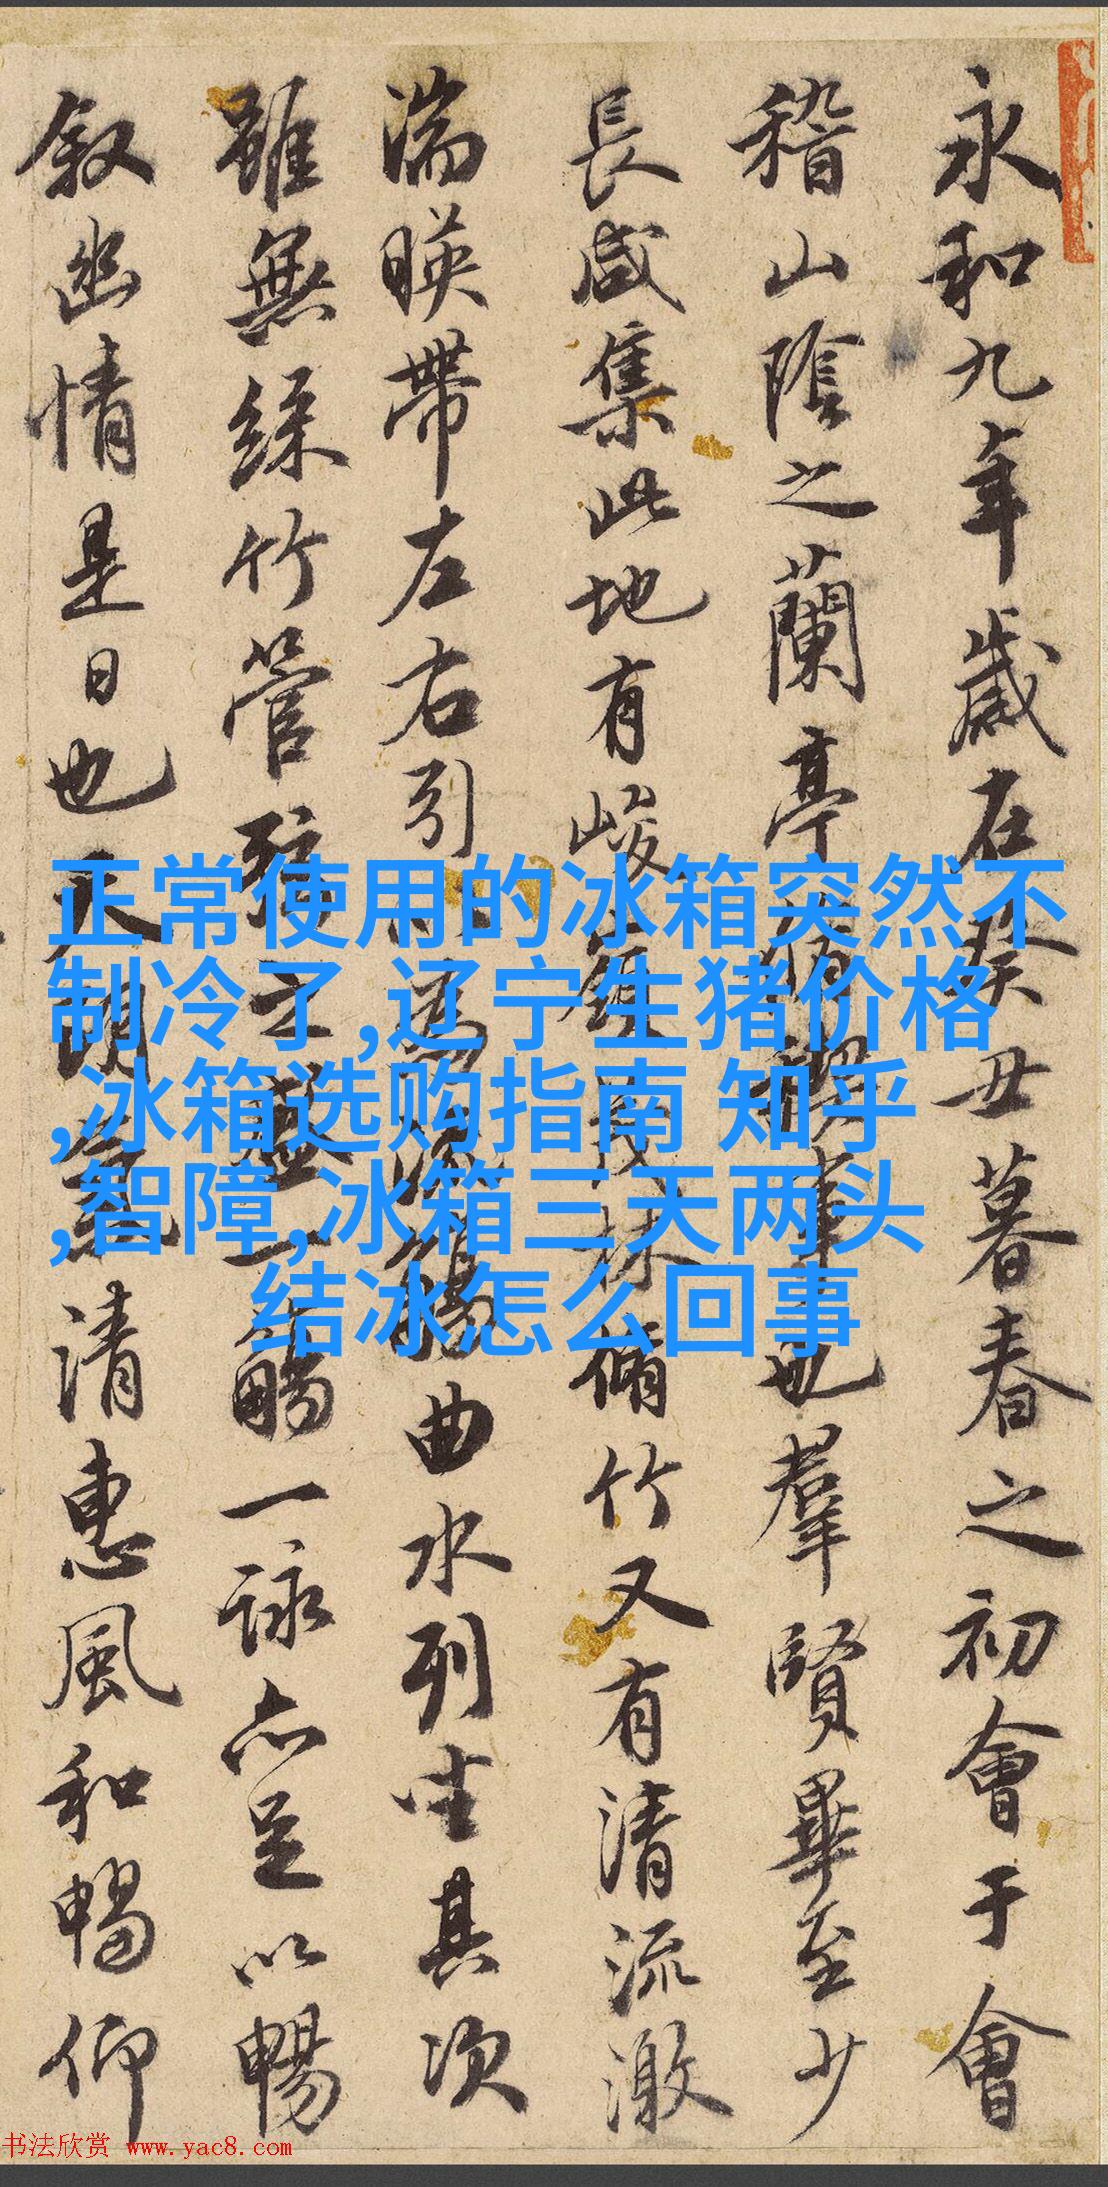 永和九年歲在癸丑暮春之初會于會
稽山陰之蘭亭脩禊事也羣賢畢至少
長咸集此地有峻領茂林脩竹又有清流激
湍暎帶左右引以為流觴曲水列坐其次
雖無絲竹管弦之盛一觴一詠亦足以暢
叙幽情是日也天朗氣清惠風和暢仰
正常使用的冰箱突然不
制冷了,辽宁生猪价格
,冰箱选购指南 知乎
,智障,冰箱三天两头
结冰怎么回事
书法欣赏 www.yac8.com